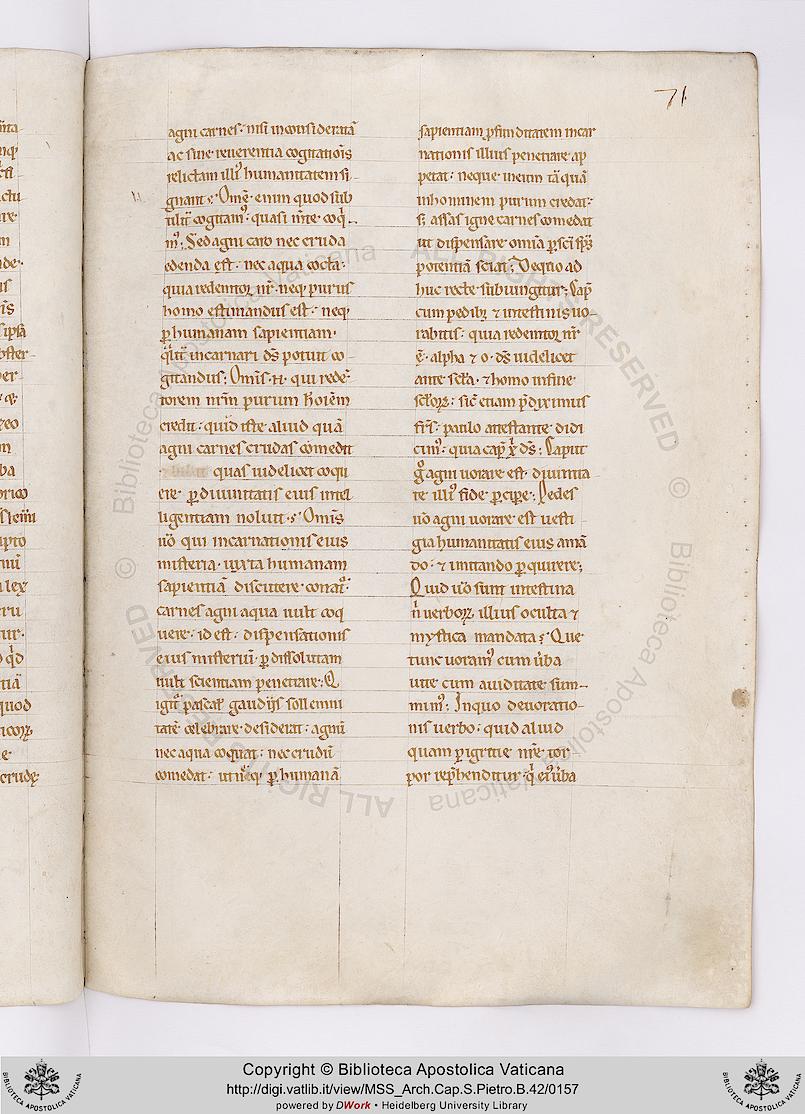 71
agni carnes· nisi inconsideratā
ac sine reuerentia cogitationis
relictam illiꝰ humanitatem si
gnant؛ Om̄e· enim quod sub
tilit̄ cogitamꝰ· quasi m̄te· coqͥ
mꝰ· Sed agni caro nec cruda
edenda est· nec aqua cocta·
quia redemtor nr̄· neqꝫ purus
homo estimandus est· neqꝫ
ꝑ humanam sapientiam·
incarnari d̄s potuit co-
gitandus; Om̄is·
qui rede-
torem nr̄m purum hoiēm
credit· quid iste aliud quā
agni carnes crudas comedit
quas uidelicet coqu
ere· ꝑ diuinitatis eius intel
ligentiam noluit؛ Om̄is
u̾o qui incarnationis eius
misteria· iuxta humanam
sapientiā discutere conat̾·
carnes agni aqua uult coq
uere· id est· dispensationis
eius misteriū· ꝑ dissolutam
uult scientiam penetrare; Q
igit̾ pascał gaudijs sollemni
tatē celebrare desiderat· agnū
nec aqua coquat· nec crudū
comedat· ut neqꝫ ꝑ humanā
sapientiam ꝓfunditatem incar
nationis illius penetrare ap
petat· neque in eum tāquā
in hominem purum credat·
s; assas igne carnes comedat
ut dispensare· omīa ꝑ sc̄i sp̄s
potentiā sciat; De quo ad
huc recte subiungitur; Cap̄
cum pedibꝫ ⁊ intestinis uo-
rabitis· quia redemtor nr̄
ē· alpha ⁊ o· d̄s uidelicet
ante sc̄la· ⁊ homo in fine
sc̄loꝝ· sic̄ etiam p̄diximus
fr̄s· paulo attestante didi
cimꝰ· quia cap̄ x̄ d̄s; Caput
gͦ agni uorare est· diuinita
tē illiꝰ fide ꝑcipe; Pedes
u̾o agni uorare· est uesti-
gia humanitatis eius amā
do· ⁊ imitando ꝑquirere;
Quid u̾o sunt intestina
n̄ uerboꝝ illius occulta ⁊
mystica mandata؛ Que
tunc uoramꝰ cum ūba
uite cum auiditate sum-
mimꝰ; In quo deuoratio-
nis uerbo· quid aliud
quam pigritie nr̄e tor
por rep̄henditur· qͥ eiꝰ ūba
Copyright © Biblioteca Apostolica Vaticana
http://digi.vatlib.it/view/MSS_Arch.Cap.S.Pietro.B.42/0157
powered by DWork • Heidelberg University Library